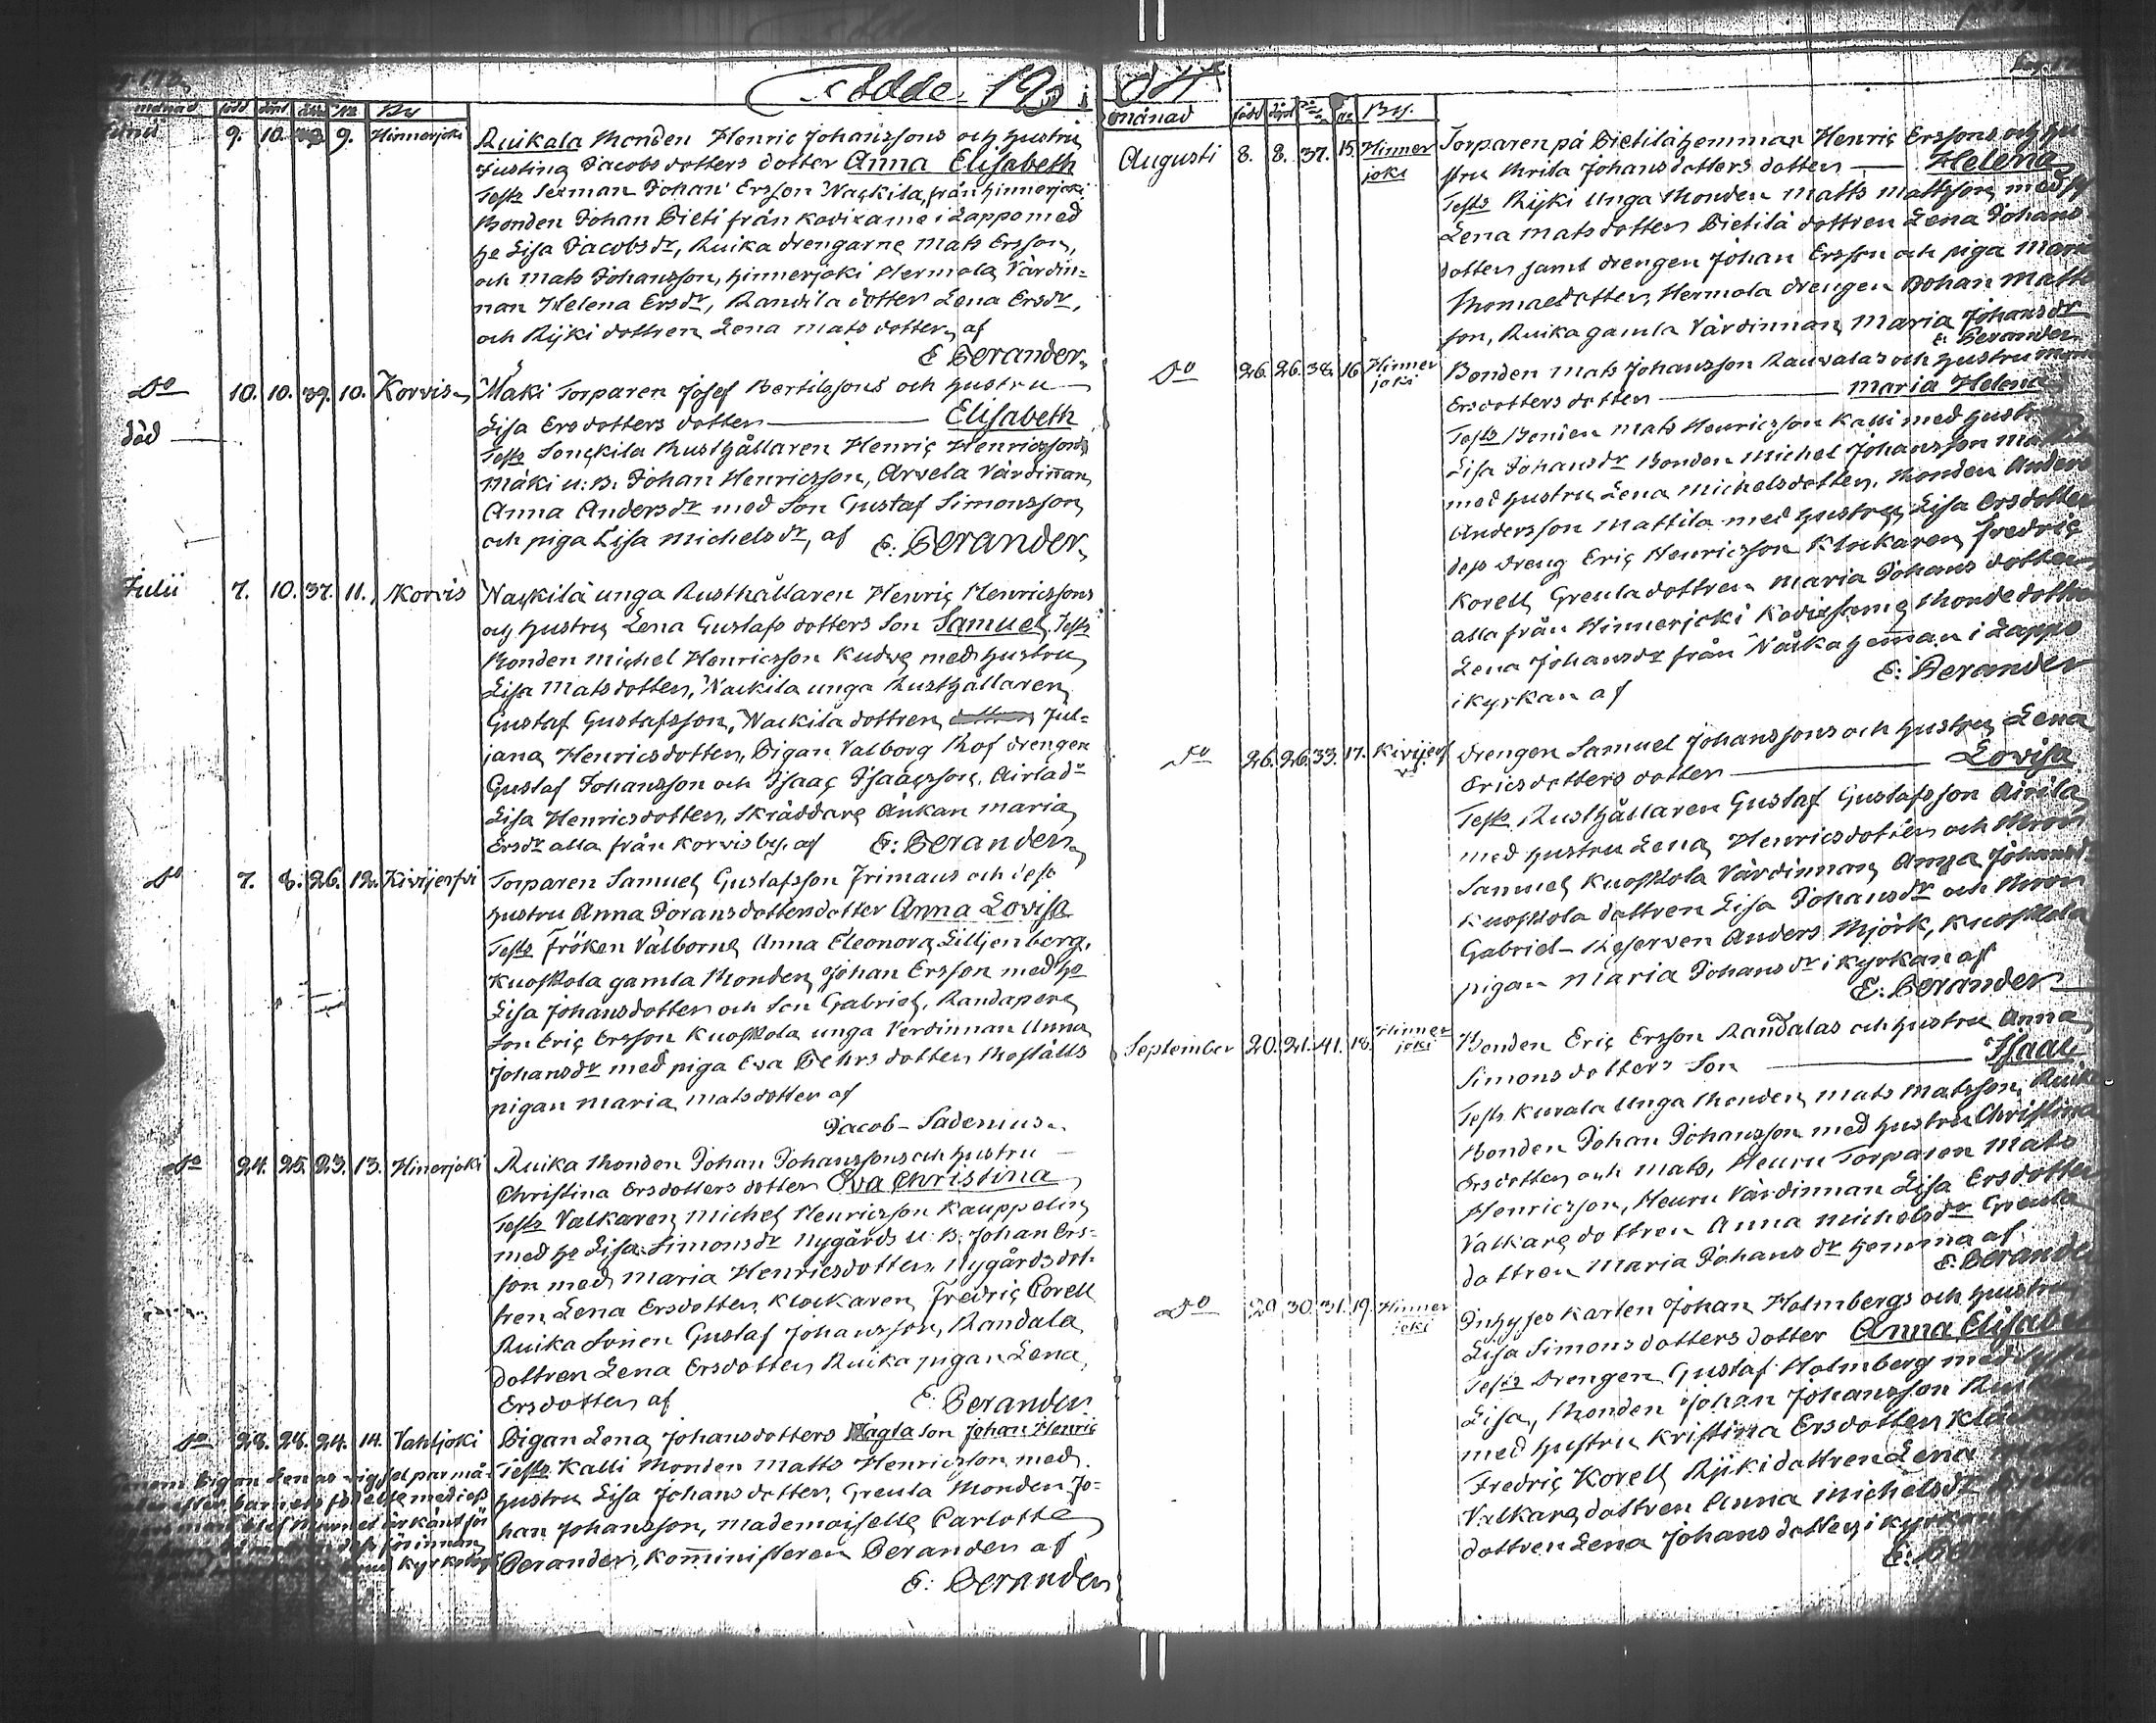 Födde 19
månad född döpt åld. No By
Junii 9. 10. 9. Hinnerjoki Ruikala Bonden Henric Johanssons och hustru
Justina Jacobsdotters dotter Anna Elisabeth
Test. Johan Ersson Naskila från Hinnerjoki
Bonden Johan Pieti från Kodixame i Lappo med
he Lisa Jacobsdr, Ruika drengarne Mats Ersson,
och Mats Johansson, Hinnerjoki Hermola Värdin=
nan Helena Ersdr, Randila dotter Lena Ersdr,
och Rijki dottren Lena Matsdotter, af
E Berander.
Do 10. 10. 39. 10. Korvis Mäki Torparen Josef Bertilssons och hustru
död Lisa Ersdotters dotter Elisabeth
Test. Sonckila Rusthållaren Henric Henricssons
Mäki u. B. Johan Henricsson, Arvela Värdinnan
Anna Andersdr med Son Gustaf Simonsson
och piga Lisa Michelsdr, af E: Berander
Julii 7. 10. 37. 11. Korvis Naskila unga Rusthållaren Henric Henricssons
och hustru Lena Gustafsdotters Son Samuel, Test.
Bonden Michel Henricsson Kudve med hustru
Lisa Matsdotter, Naskila unga Rusthållaren
Gustaf Gustafsson, Naskila dottren Jul=
iana Henricsdotter, Pigan Valborg Rof drengen
Gustaf Johansson och Isaac Isaacsson, Airladr
Lisa Henricsdotter, Skräddare Änkan Maria
Ersdr alla från Korvisby, af E: Berander
Do 7. 8. 26. 12. Kivijerfvi Torparen Samuel Gustafsson Frimans och dess
hustru Anna Joransdotters dotter Anna Lovisa
Test. Fröken Välborne Anna Eleonora Lilljenberg,
Kuoskola gamla Bonden Johan Ersson med he
Lisa Johansdotter och Son Gabriel, Randapere
Son Eric Ersson Kuoskola unga Verdinnan Anna
Johansdr med piga Eva Pehrsdotter Boställs
pigan Maria Matsdotter af
Jacob Sadenius
Do 24. 25. 23. 13. Hinerjoki Ruika Bonden Johan Johanssons och hustru
Christina Ersdotters dotter Eva Christina
Test. Valkaren Michel Henricsson Kauppelin
med he Lisa Simonsdr Nygårds u. B. Johan Ers=
son med Maria Henricsdotter, Nygårds dot=
tren Lena Ersdotter Klockaren Fredric Corell
Ruika Sonen Gustaf Johansson, Randala
dottren Lena Ersdotter Ruika pigan Lena
Ersdotter af E: Berander
Do 28. 28. 24. 14. Vahtjoki Pigan Lena Johansdotters oägta Son Johan Henric
Test. Kalli Bonden Matts Henricsson med
hustru Lisa Johansdotter, Greula Bonden Jo=
han Johansson, Mademoiselle Carlotte
Berander, Komministeren Berander af
E: Berander
04
månad född döpt By.
Augusti 8. 8. 37. 15. Hinner joki Torparen på Pietilä hemman Henric Erssons och hu
stru Brita Johansdotters dotter Helena
Test. Rijki unga Bonden Matts Mattsson med h
Lena Matsdotter Pietilä dottren Lena Johans
dotter samt drengen Johan Ersson och piga Mari
Thomaedotter, Hermola drengen Johan Matts
son, Ruika gamla Värdinnan Maria Johansdr
E. Berander
Do 26. 26. 38. 16. Hinner joki Bonden Mats Johansson Rauvalas och hustru
Ersdotters dotter Maria Helena
Test. Bonden Mats Henricsson Kalli med hustru
Lisa Johansdr Bonden Michel Johansson
med hustru Lena Michelsdotter, Bonden Anders
Andersson Mattila med hustru Lisa Ersdotter
dess dreng Eric Henricsson Klockaren Fredric
Korell, Greula dottren Maria Johansdotter
alla från Hinnerjoki Kodixame Bondedotter
Lena Johansdr från Naska hemman i Lappo
i kyrkan af E: Berander
Do 26. 26. 33. 17. Kivijerf Drengen Samuel Johanssons och hustru Lena
Ericsdotters dotter Lovisa
Test. Rusthållaren Gustaf Gustafsson Airila
med hustru Lena Henricsdotter och
Samuel Kuoskola Värdinnan Anna Johansd
Kuoskola dottren Lisa Johansdr och
Gabriel Reserven Anders Björk, Kuoskola
pigan Maria Johansdr i kyrkan af
E: Berander
September 20. 21. 41. 18. Hinner joki Bonden Eric Ersson Randalas och hustru Anna
Simonsdotters Son Isaac
Test. Kuvala unga Bonden Mats Matsson, Ruika
Bonden Johan Johansson med hustru Christina
Ersdotter och Mats, Heuru Torparen Mats
Henricsson, Heuru Värdinnan Lisa Ersdotter
Valkare dottren Anna Michelsdr Greula
dottren Maria Johansdr hemma af
E: Berander
Do 29. 30. 31. 19. Hinner joki Inhyses Karlen Johan Holmbergs och hustru
Lisa Simonsdotters dotter Anna Elisabe
Test. Drengen Gustaf Holmberg med
Lisa, Bonden Johan Johansson
med hustru Kristina Ersdotter
Fredric Korell, Rijki dottren Lena
Valkare dottren Anna Michelsdr
dottren Lena Johansdotter, i kyrkan af